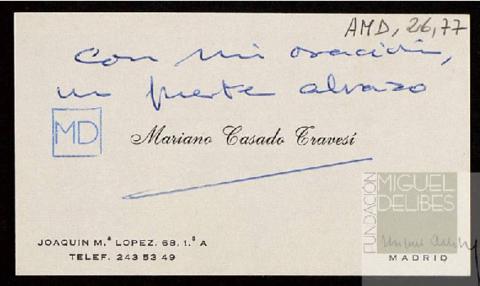 AMD, 26, 77
con mi oración,
un fuerte abrazo
MD
Mariano Casado Travesí
JOAQUIN M.ª LOPEZ, 68, 1.º A
TELEF. 243 53 49
MADRID
FUNDACIÓN
MIGUEL
DELIBES